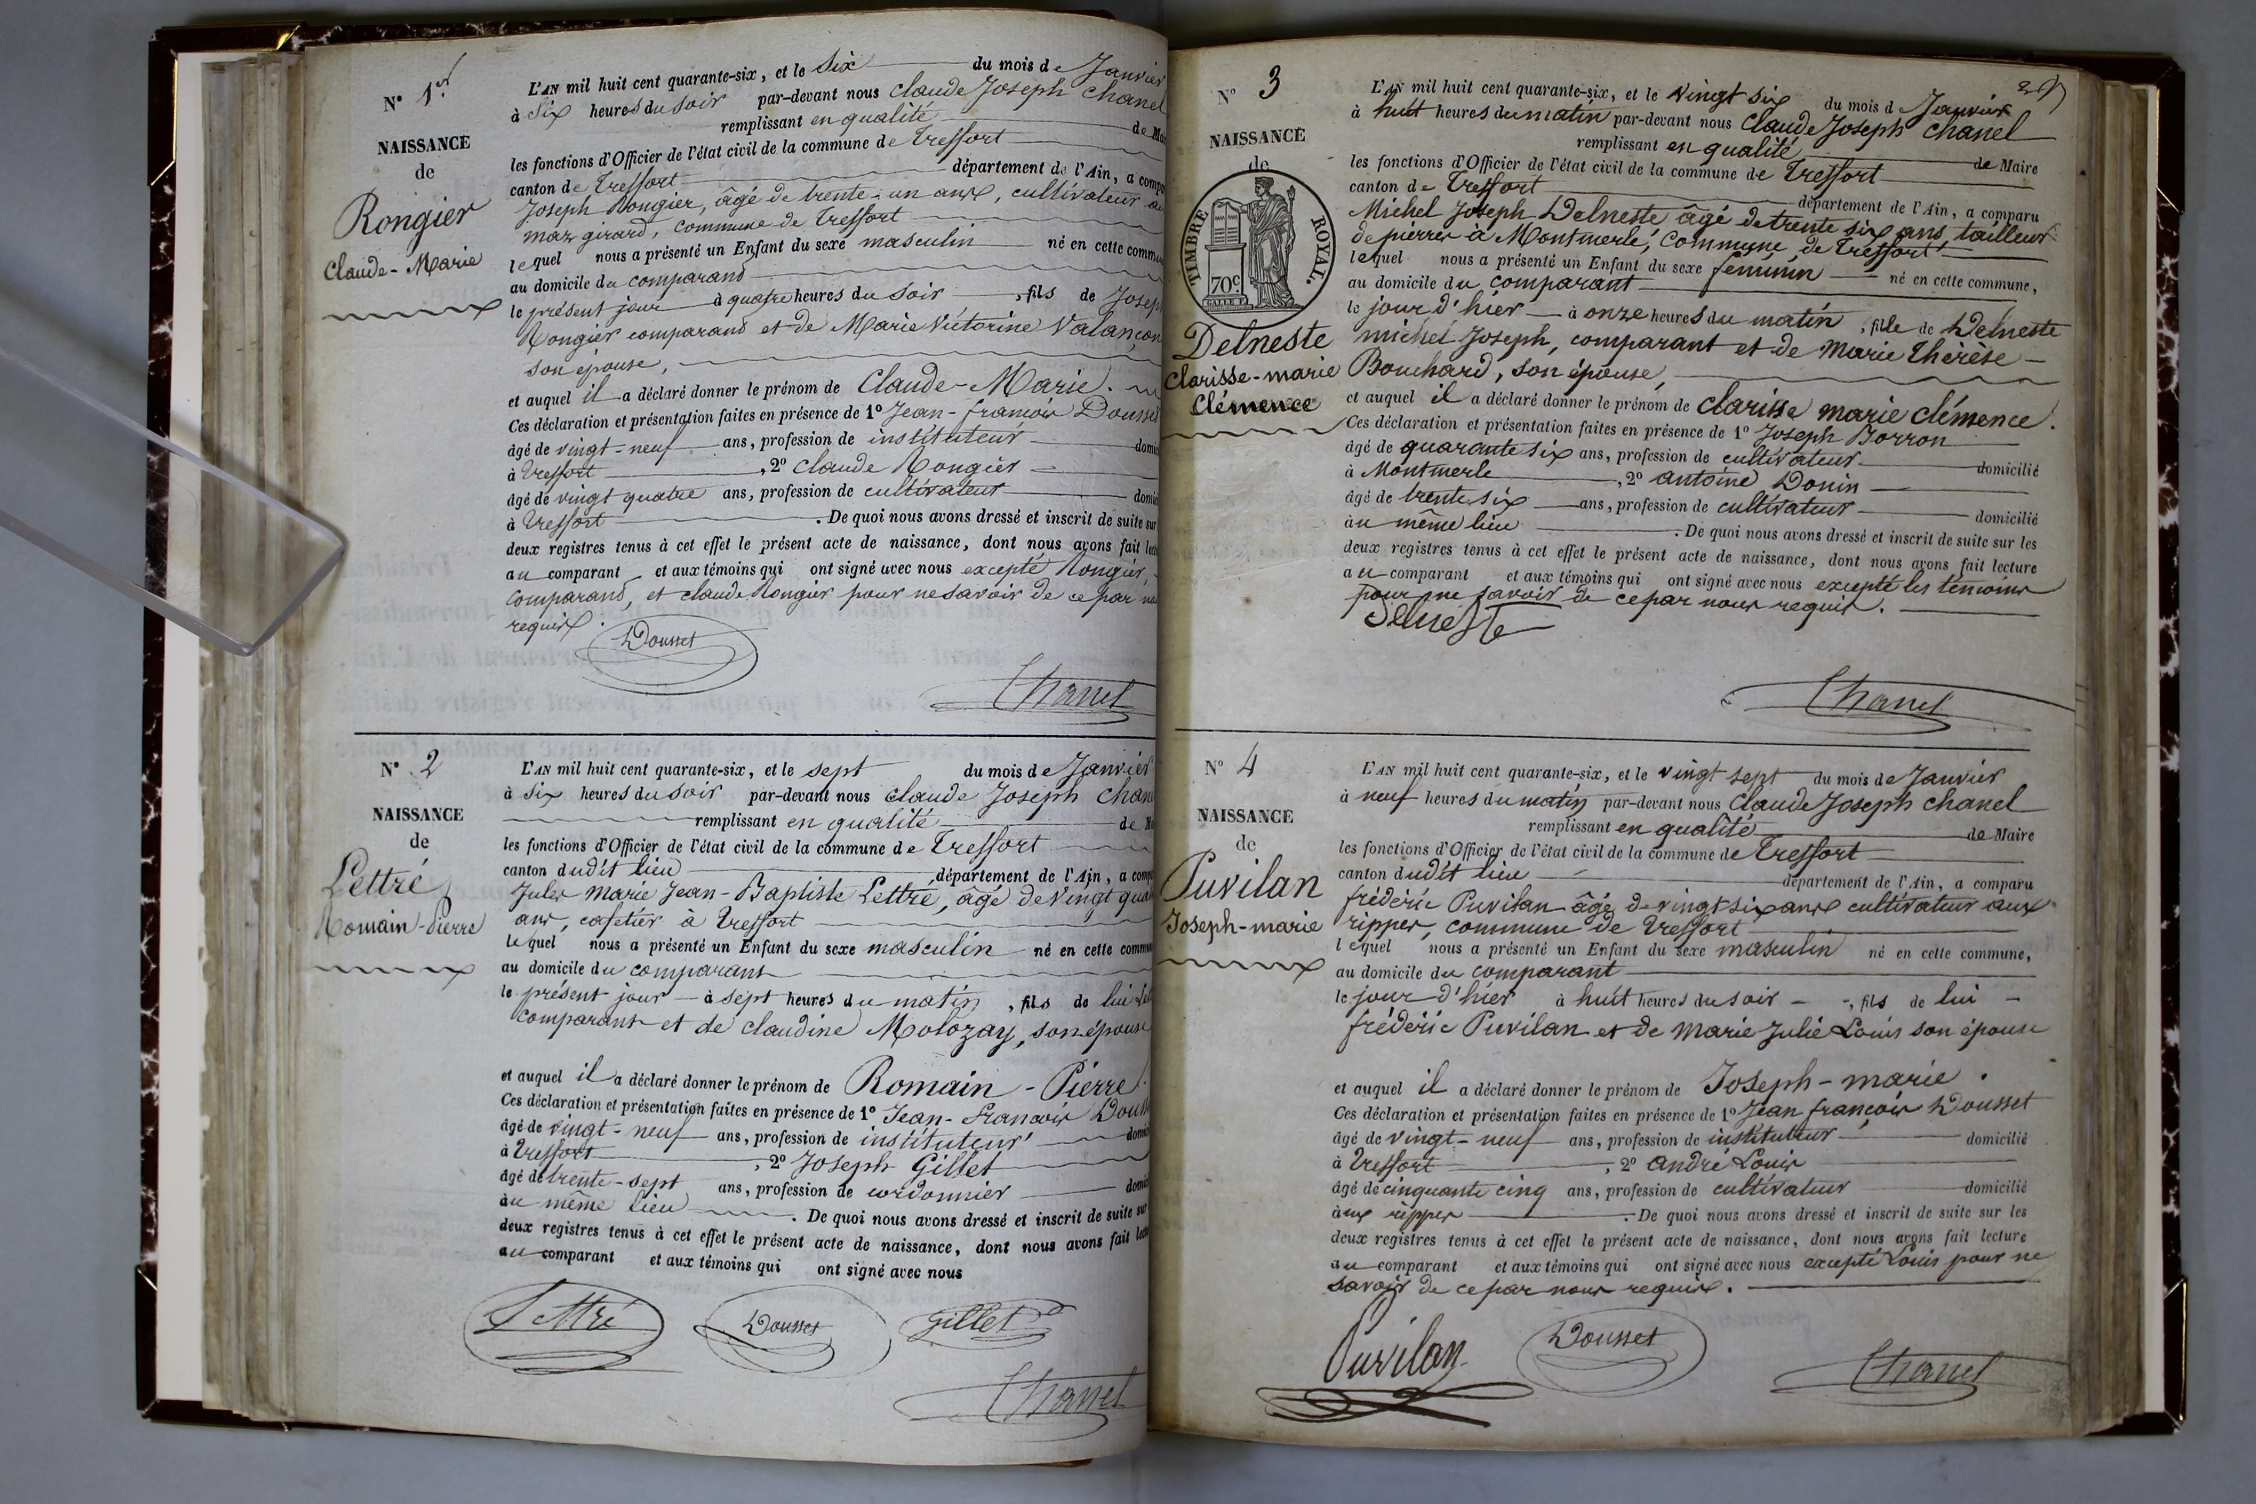 N° 1er
NAISSANCE
de
Rongier
Claude-Marie
L'AN mil huit cent quarante-six, et le Six du mois de Janvier
à Six heures du soir par-devant nous Claude Joseph Chanel
remplissant en qualité de Mai
les fonctions d'Officier de l'état civil de la commune de Treffort
canton de Treffort département de l'Ain, a compa
Joseph Rongier, âgé de trente-un ans, cultivateur au
maz girard, commune de Treffort
lequel nous a présenté un Enfant du sexe masculin né en cette commu
au domicile du comparand
le présent jour à quatre heures du soir, fils de Josep
Rongier comparand et de Marie Victorine Valançon
son épouse,
et auquel il a déclaré donner le prénom de Claude-Marie.
Ces déclaration et présentation faites en présence de 1° Jean-françois Dousset
âgé de vingt-neuf ans, profession de instituteur domic
à Treffort, 2° Claude Rongier
âgé de vingt quatre ans, profession de cultivateur domic
à Treffort. De quoi nous avons dressé et inscrit de suite sur
deux registres tenus à cet effet le présent acte de naissance, dont nous avons fait lect
au comparant et aux témoins qui ont signé avec nous excepté Rongier,
comparand, et claude Rongier pour ne savoir de ce par no
requis.
Dousset
Chanel
N° 2
NAISSANCE
de
Lettré
Romain-Pierre
L'AN mil huit cent quarante-six, et le sept du mois de Janvier
à Six heures du soir par-devant nous Claude Joseph Chan
remplissant en qualité de M
les fonctions d'Officier de l'état civil de la commune de Treffort
canton dudit lieu département de l'Ain, a comp
Jules Marie Jean-Baptiste Lettré, âgé de vingt qua
ans, cafetier à Treffort
lequel nous a présenté un Enfant du sexe masculin né en cette commu
au domicile du comparant
le présent jour à sept heures du matin, fils de lui
comparant et de claudine Molozay, son épouse
et auquel il a déclaré donner le prénom de Romain-Pierre.
Ces déclaration et présentation faites en présence de 1° Jean-francois Douss
âgé de vingt-neuf ans, profession de instituteur domic
à Treffort, 2° Joseph Gillet
âgé de trente-sept ans, profession de cordonnier domic
au même lieu. De quoi nous avons dressé et inscrit de suite sur
deux registres tenus à cet effet le présent acte de naissance, dont nous avons fait lect
au comparant et aux témoins qui ont signé avec nous
Lettré Dousset Gillet
Chanel
N° 3
NAISSANCE
de
TIMBRE ROYAL.
70c.
Delneste
Clarisse-marie
Clémence
L'AN mil huit cent quarante-six, et le vingt six du mois d Janvier
à huit heures du matin par-devant nous Claude Joseph Chanel
remplissant en qualité de Maire
les fonctions d'Officier de l'état civil de la commune de Treffort
canton de Treffort département de l'Ain, a comparu
Michel Joseph Delneste âgé de trente six ans tailleur
de pierres à Montmerle, Commune de Treffort
lequel nous a présenté un Enfant du sexe féminin né en cette commune,
au domicile du comparant
le jour d'hier à onze heures du matin, fille de Delneste
michel Joseph, comparant et de Marie Thérèse
Bouchard, son épouse,
et auquel il a déclaré donner le prénom de clarisse marie clémence.
Ces déclaration et présentation faites en présence de 1° Joseph Borron
âgé de quarante six ans, profession de cultivateur domicilié
à Montmerle, 2° antoine Donin
âgé de trente six ans, profession de cultivateur domicilié
au même lieu. De quoi nous avons dressé et inscrit de suite sur les
deux registres tenus à cet effet le présent acte de naissance, dont nous avons fait lecture
au comparant et aux témoins qui ont signé avec nous excepté les témoins
pour ne savoir de ce par nous requis.
Delneste
Chanel
N° 4
NAISSANCE
de
Puvilan
Joseph-marie
L'AN mil huit cent quarante-six, et le vingt sept du mois de Janvier
à neuf heures du matin par-devant nous Claude Joseph Chanel
remplissant en qualité de Maire
les fonctions d'Officier de l'état civil de la commune de Treffort
canton dudit lieu département de l'Ain, a comparu
frédéric Puvilan âgé de vingt six ans cultivateur aux
ripper, commune de Treffort
lequel nous a présenté un Enfant du sexe masculin né en cette commune,
au domicile du comparant
le jour d'hier à huit heures du soir, fils de lui
frédéric Puvilan et de Marie Julie Louis son épouse
et auquel il a déclaré donner le prénom de Joseph-marie.
Ces déclaration et présentation faites en présence de 1° Jean françois Dousset
âgé de vingt-neuf ans, profession de instituteur domicilié
à Treffort, 2° andré Louis
âgé de cinquante cinq ans, profession de cultivateur domicilié
aux ripper. De quoi nous avons dressé et inscrit de suite sur les
deux registres tenus à cet effet le présent acte de naissance, dont nous avons fait lecture
au comparant et aux témoins qui ont signé avec nous excepté Louis pour ne
savoir de ce par nous requis.
Puvilan Dousset
Chanel